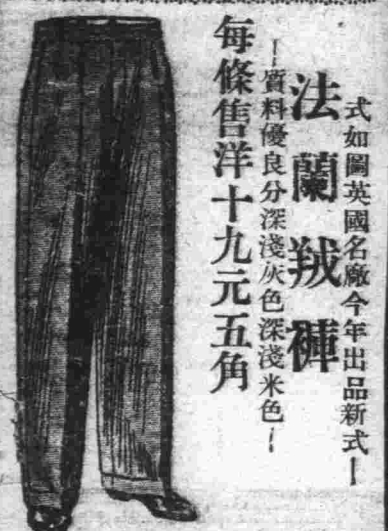 式如圖英國名廠今年出品新式—
法蘭羢褲
—質料優良分深淺灰色深淺米色—
每條售洋十九元五角